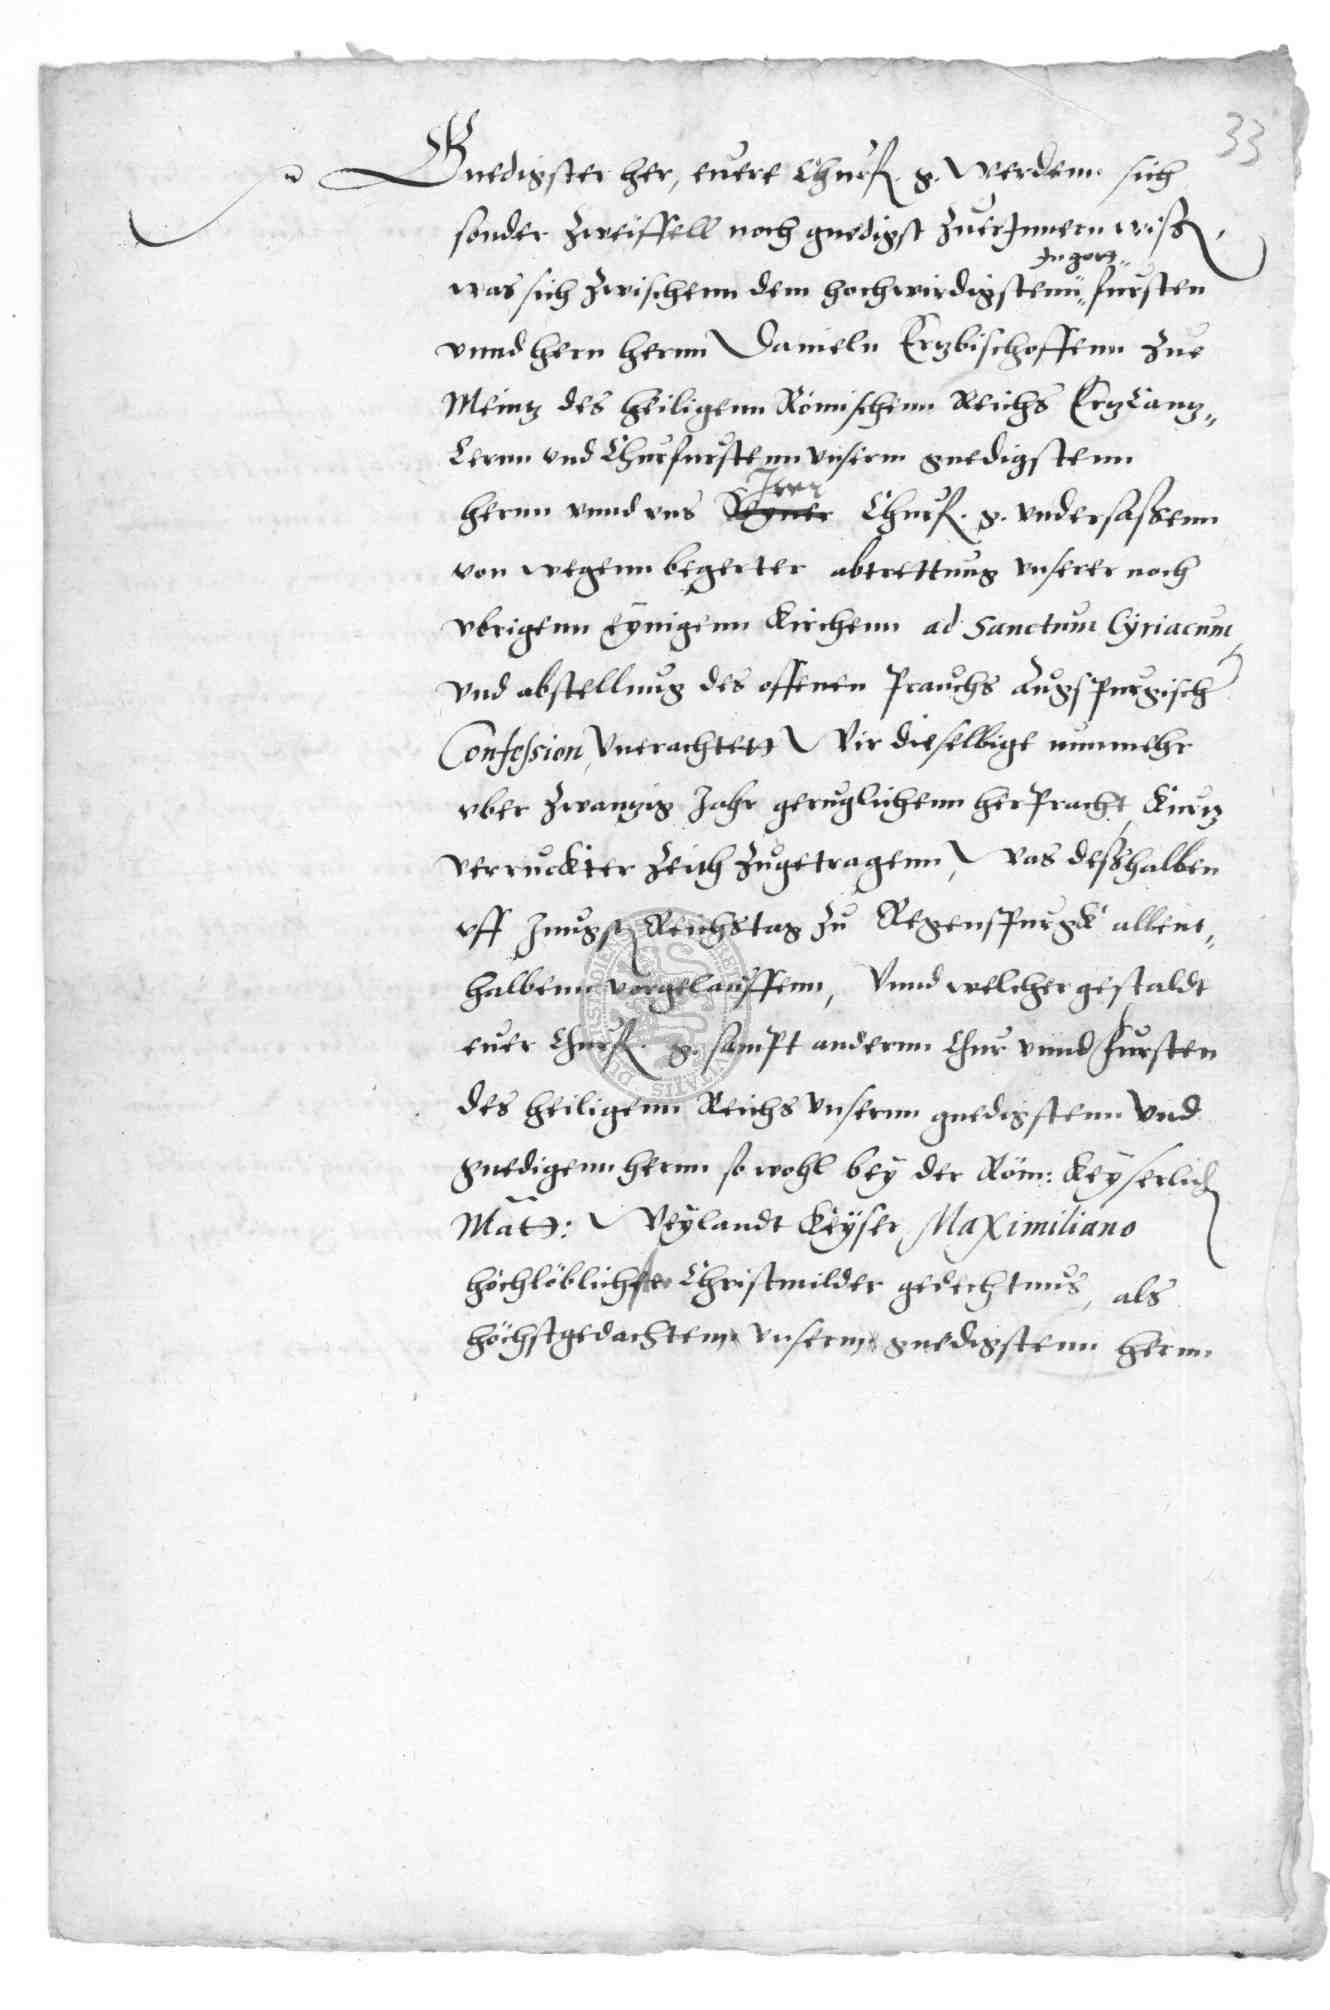 33
Gnedigster her, euere Churf. g. werdenn sich
sonder zweiffell noch gnedigst zuerJnnern wiss,
was sich zwischenn dem hochwirdigstenn Jn gott fursten
vnnd hern hernn Danieln Ertzbischoffenn zue
Meintz des heiligenn Römischenn Reichs Ertzcantz„
lernn vnd Churfurstenn vnserm gnedigstenn
hernn vnnd vns Jrer Churf. g. vndersassenn
von wegenn begerter abtrettung vnserer noch
vbrigenn eÿnigenn Kirchenn ad Sanctum Cÿriacum,
vnd abstellung des offenen prauchs Augspurgisch
Confession, vnerachtett Wir dieselbige nunmehr
vber zwantzig Jahr geruglichenn herpracht, kurtz
verruckter Zeith zugetragenn, Was desshalben
vff Jungst Reichstag zu Regenspurgk allent„
halbenn vorgelauffenn, Vnnd welcher gestaldt
euer Churf. g. sampt andernn Chur vnnd fursten
des heiligenn Reichs vnsernn gnedigstenn vnd
gnedigenn hernn so wohl beÿ der Röm: Keÿserlich
Matt: Weÿlandt Keÿser Maximiliano
höchlöblichster Christmilder gedechtnus, als
höchstgedachtem vnserm gnedigstenn hernn